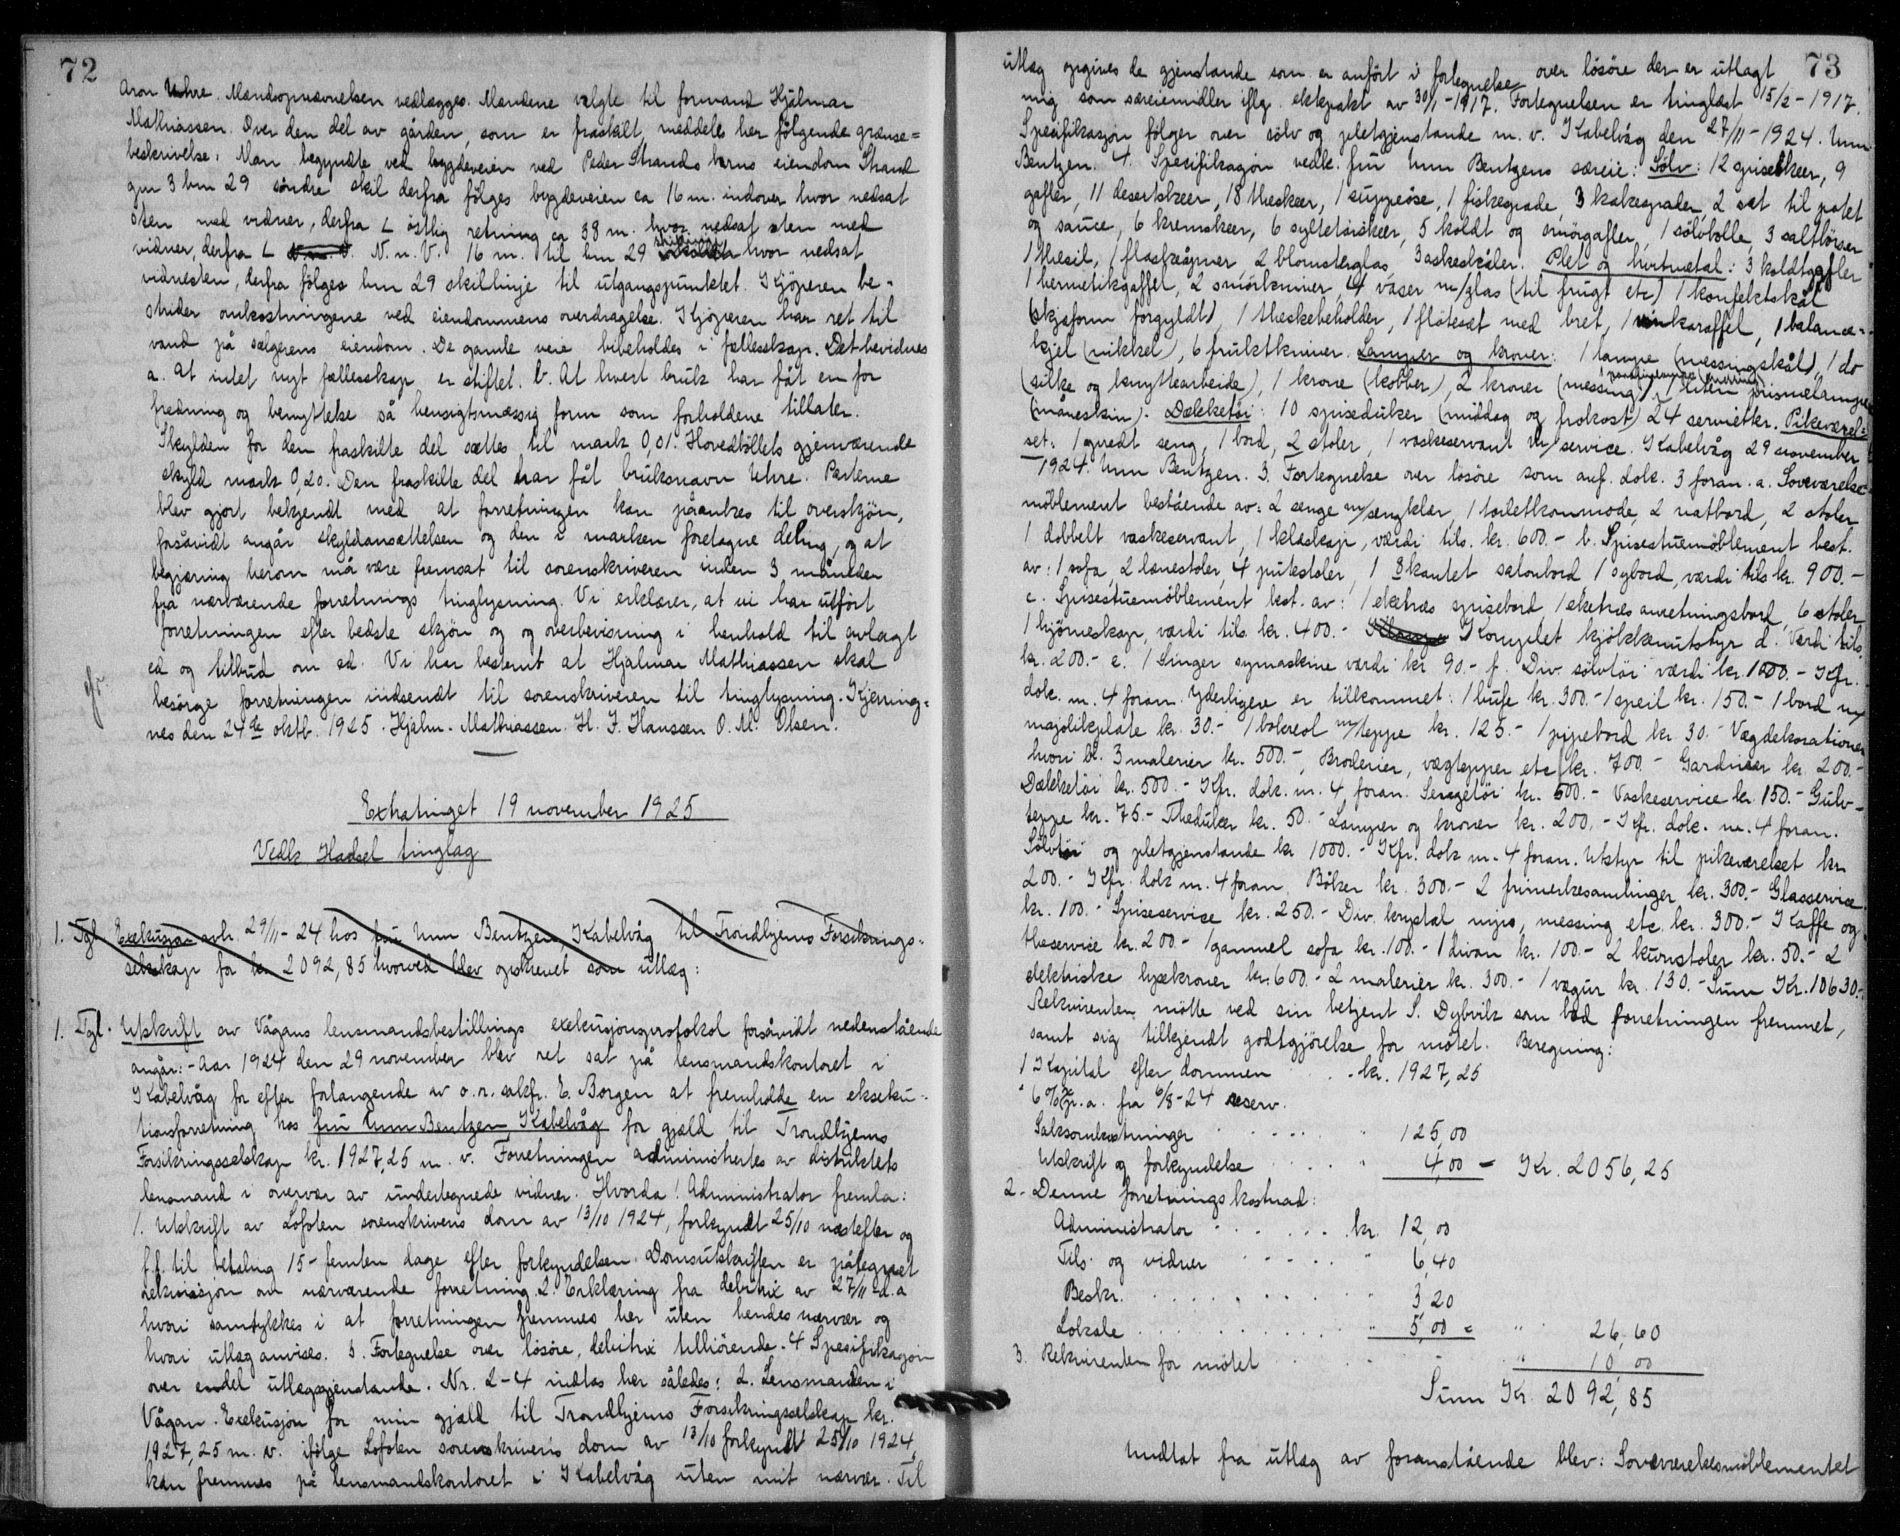 72
Aron Uhre. Mandsopnævnelsen vedlægges. Mændene valgte til formand Hjalmar
Mathiassen. Over den del av gården, som er fraskilt, meddeles her følgende grænse=
beskrivelse: Man begyndte ved bygdeveien ved Peder Strands barns eiendom Strand
gnr 3 bnr 29 søndre skil derfra følges bygdeveien ca 16 m. indover hvor nedsat
sten med vidner, derfra L østlig retning ca 38 m. hvor nedsat sten med
vidner, derfra L N. n. V. 16 m. til bnr 29 skillinje hvor nedsat
vidnesten, derfra følges bnr 29 skillinje til utgangspunktet. Kjøperen be-
strider omkostningene ved eiendommens overdragelse. Kjøperen har ret til
vand på sælgerens eiendom. De gamle veie bibeholdes i fællesskap. Det bevidnes
a. At intet nyt fællesskap er stiftet. b. At hvert bruk har fåt en for
fredning og benyttelse så hensigtsmæssig form som forholdene tillater.
Skylden for den fraskilte del sættes til mark 0,01. Hovedbøllets gjenværende
skyld mark 0,20. Den fraskilte del har fåt bruksnavn Uhre. Parterne
blev gjort bekjendt med at forretningen kan påankes til overskjøn,
forsåvidt angår skyldansættelsen og den i marken foretagne deling, og at
begjæring herom må være fremsat til sorenskriveren inden 3 måneder
fra nærværende forretnings tinglysning. Vi erklærer, at vi har utført
forretningen efter bedste skjøn og og overbevisning i henhold til avlagt
ed og tilbud om ed. Vi har bestemt at Hjalmar Mathiassen skal
besørge forretningen indsendt til sorenskriveren til tinglysning. Kjerring=
nes den 24de oktb. 1925. Hjalm. Mathiassen. H. J. Hanssen O. M. Olsen.
Extratinget 19 november 1925
Vedk Hadsel tinglag
1. Tgl. Exekusjon avh. 29/11-24 hos fru Unn Bentzen, Kabelvåg til Trondhjems Forsikrings=
selskap for kr. 2092,85 hvorved blev opskrevet som utlæg:
1. Tgl. Utskrift av Vågans lensmandsbestillings exekusjonsprotokol forsåvidt nedenstående
angår: - Aar 1924 den 29 november blev ret sat på lensmandskontoret i
Kabelvåg for efter forlangende av o.r. sakfr. E. Borgen at fremholde en ekseku-
tionsforretning hos fru Unn Bentzen, Kabelvåg for gjæld til Trondhjems
Forsikringsselskap kr. 1927,25 m. v. Forretningen administertes av distriktets
lensmand i overvær av undertegnede vidner. Hvorda! Administrator fremla:
1. Utskrift av Lofoten sorenskrivers dom av 13/10 1924, forkyndt 25/10 næstefter og
f.f. til betaling 15 - femten dage efter forkyndelsen. Domsutskriften er påtegnet
rekvisisjon om nærværende forretning. 2. Erklæring fra debitrix av 27/11 d.a
hvori samtykkes i at forretningen fremmes her uten hendes nærvær og
hvori utlæg anvises. 3. Fortegnelse over løsøre, debitrix tilhørende. 4 Spesifikasjon
over endel utlægsgjenstande. Nr. 2-4 indtas her således: 2. Lensmanden i
Vågan. Exekusjon for min gjæld til Trondhjems Forsikringsselskap kr.
1927,25 m. v. ifølge Lofoten sorenskrivers dom av 13/10 forkyndt 25/10 1924,
kan fremmes på lensmandskontoret i Kabelvåg uten mit nærvær. Til
73
utlæg opgives de gjenstande som er anført i fortegnelse over løsøre der er utlagt
mig som særeiemidler iflg. ektepakt av 30/1-1917. Fortegnelsen er tinglæst 15/2-1917.
Spesifikasjon følger over sølv og pletgjenstande m. v. Kabelvåg den 27/11-1924. Unn
Bentzen. 4. Spesifikasjon vedk. fru Unn Bentzens særeie: Sølv: 12 spiseskeer, 9
gafler, 11 desertskeer, 18 theskeer, 1 suppeøse, 1 fiskespade, 3 kakespader, 2 sæt til potet
og sauce, 6 kremskeer, 6 syltetøiskeer, 5 koldt og smörgafler, 1 sølvbolle, 3 saltbörser
1 thesil, 1 flaskeåpner, 2 blomsterglas, 3 askeskåler. Plet og hvitmetal: 3 koldtgafler
1 hermetikgaffel, 2 smörkniver, 4 vaser m/glas (til frugt etc) 1 konfektskål
(skjsform forgyldt), 1 theskebeholder, 1 fløtesæt med bret, 1 vinkaraffel, 1 balance-
kjel (nikkel), 6 fruktkniver. Lamper og kroner: 1 lampe (messingskål), 1 do
(silke og knyttearbeide), 1 krone (kobber), 2 kroner (messing), 1 liten prismelampe
(måneskin). Dækketøi: 10 spiseduker (middag og frokost) 24 servietter. Pikeværel=
set: 1 opredt seng, 1 bord, 2 stoler, 1 vaskeservant m/service. Kabelvåg 29 november
1924. Unn Bentzen. 3. Fortegnelse over løsøre som anf. dok. 3 foran. a. Soveværelse-
möblement bestående av: 2 senge m/sengklær, 1 toiletkommode, 2 natbord, 2 stoler
1 dobbelt vaskeservant, 1 klæskap, værdi tils. kr. 600.- b. Spisestuemöblement best.
av: 1 sofa, 2 lænestoler, 4 pukstoler, 1 8kantet salonbord 1 sybord, værdi tils kr. 900.-
c. Spisestuemöblement best. av: 1 eketræs spisebord 1 eketræs anretningsbord, 6 stoler
1 hjörneskap, værdi tils. kr. 400.- Komplet kjökkenutstyr d. Værdi tils.
kr. 200.- e. 1 Singer symaskine værdi kr 90.- f. Div. sølvtøi værdi kr. 1000.- Kfr.
dok. nr. 4 foran. Yderligere er tilkommet: 1 bufe kr. 300.- 1 speil kr. 150.- 1 bord m/
majolikplate kr. 30.- 1 bokreol m/teppe kr. 125.- 1 pipebord kr. 30.- Vægdekorationer
hvori bl. 3 malerier kr. 500.-, Broderier, vægtepper etc kr. 700.- Gardiner kr. 200.-
Dækketøi kr. 500.- Kfr. dok. nr. 4 foran. Sengetöi kr. 500.- Vaskeservice kr. 150.- Gulv-
teppe kr. 75.- Theduker kr. 50.- Lamper og kroner kr. 200.- Kfr. dok. nr. 4 foran.
Sølvtøi og pletgjenstande kr 1000.- Kfr. dok nr. 4 foran. Utstyr til pikeværelset kr.
200.- Kfr. dok nr. 4 foran. Bøker kr. 300.- 2 frimerkesamlinger kr. 300.- Glasservice
kr. 100.- Spiseservice kr. 250.- Div. krystal nips, messing etc. kr. 300.- Kaffe og
theservice kr. 200.- 1 gammel sofa kr. 100.- 1 divan kr. 100.- 2 kurvstoler kr. 50.- 2
elektriske lysekroner kr. 600.- 2 malerier kr. 300.- 1 vægur kr. 130.- Sum Kr. 10630.-
Rekvirenten møtte ved sin betjent S. Dybvik som bad forretningen fremmet,
samt sig tilkjendt godtgjörelse for møtet. Beregning:
1 Kapital efter dommen . . . . kr. 1927,25
6 % p. a. fra 6/8-24 reserv.
Saksomkostninger . . . . " 125,00
Utskrift og forkyndelse . . . . " 4,00 = Kr. 2056,25
2. Denne forretnings kostnad:
Administrator . . . . . kr. 12,00
Tils. og vidner . . . . " 6,40
Beskr. . . . . . . . " 3,20
Lokale . . . . . . . " 5,00 = " 26,60
3. Rekvirenten for møtet . . . . . " 10,00
Sum Kr. 2092,85
Undtat fra utlæg av foranstående blev: Soveværelsesmöblementet